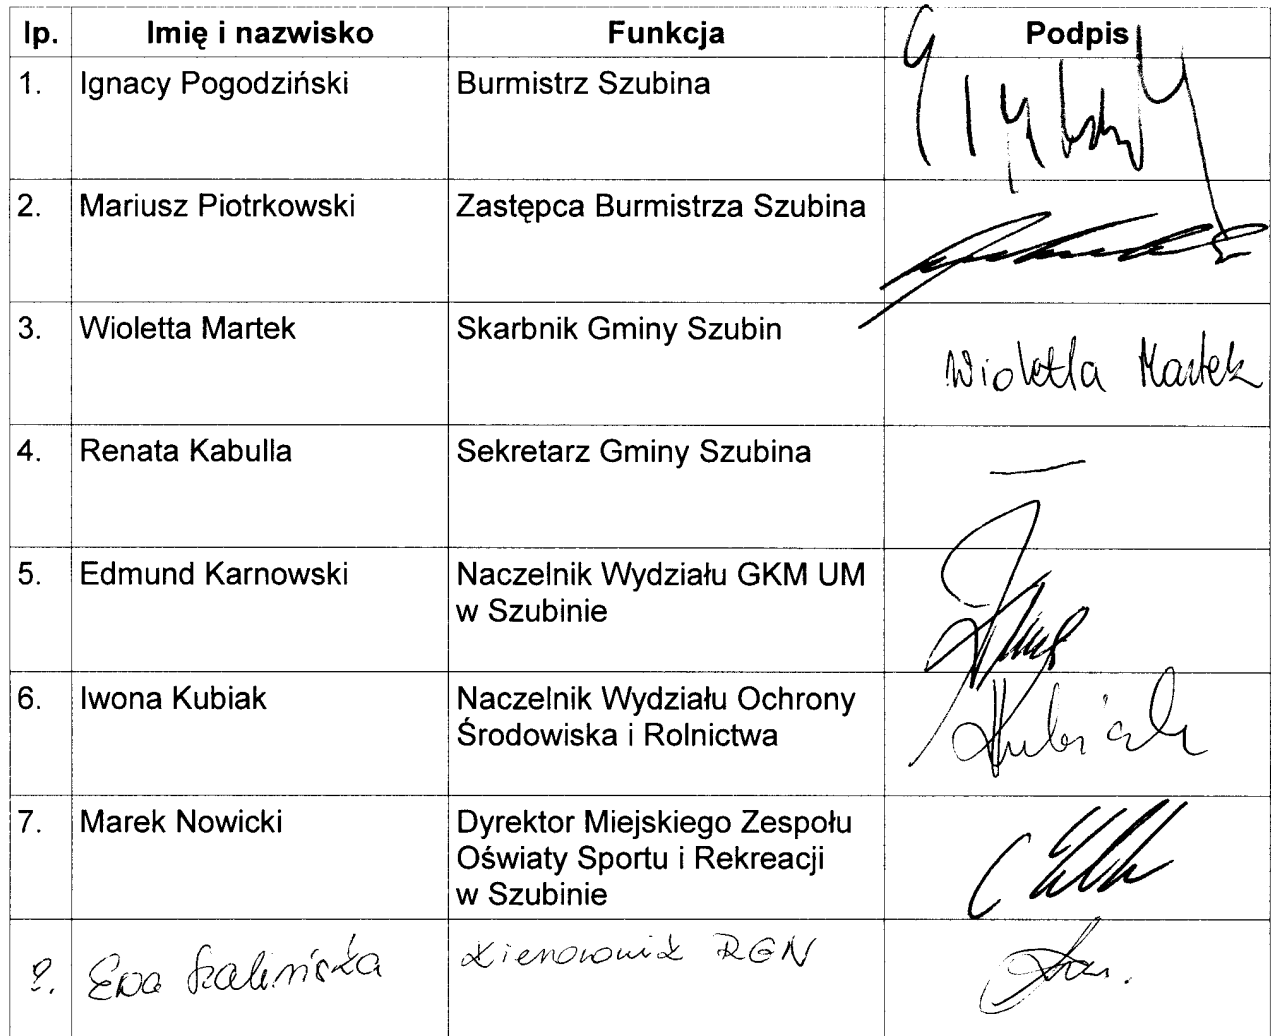 lp. Imię i nazwisko Funkcja Podpis
1. Ignacy Pogodziński Burmistrz Szubina
2. Mariusz Piotrkowski Zastępca Burmistrza Szubina
3. Wioletta Martek Skarbnik Gminy Szubin
Wioletta Martek
4. Renata Kabulla Sekretarz Gminy Szubina
—
5. Edmund Karnowski Naczelnik Wydziału GKM UM
w Szubinie
6. Iwona Kubiak Naczelnik Wydziału Ochrony
Środowiska i Rolnictwa
Kubiak
7. Marek Nowicki Dyrektor Miejskiego Zespołu
Oświaty Sportu i Rekreacji
w Szubinie
8. Ewa Kierownik RGN